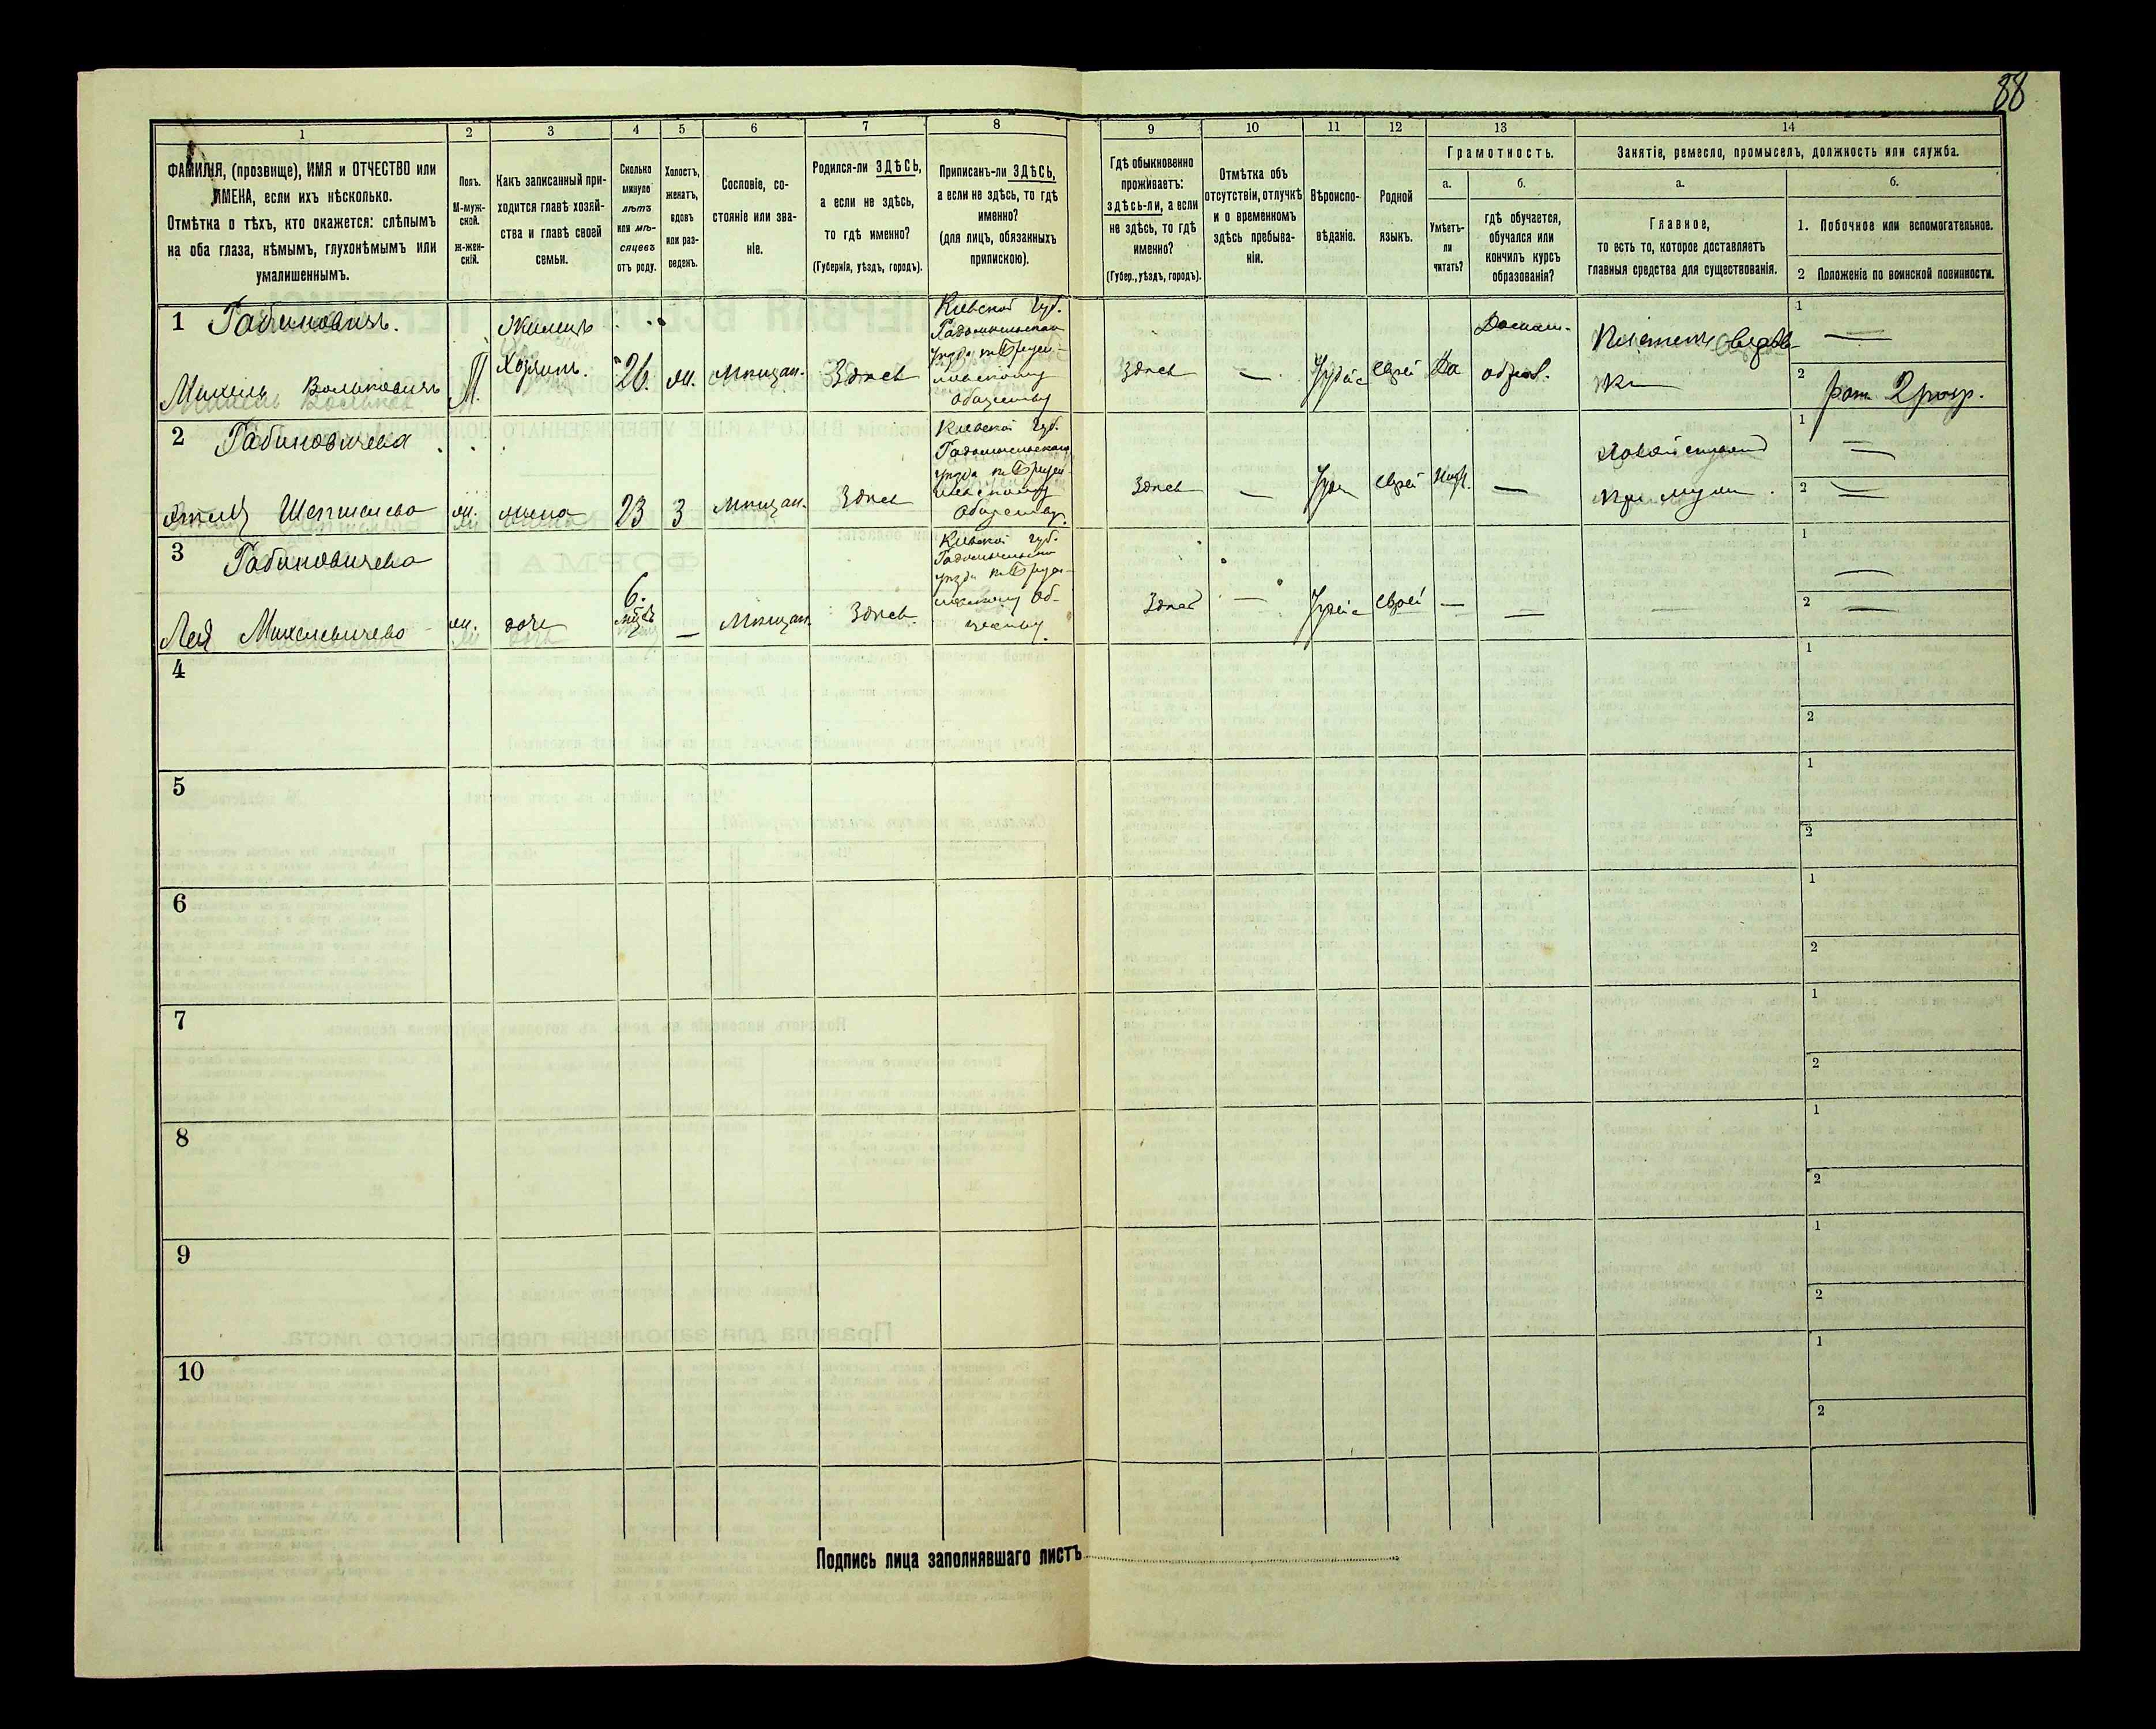 88
1
2
3
4
5
6
7
8
9
10
11
12
13
14
ФАМИЛІЯ, (прозвище), ИМЯ и ОТЧЕСТВО или
ИМЕНА, если ихъ нѣсколько.
Отмѣтка о тѣхъ, кто окажется: слѣпымъ
на оба глаза, нѣмымъ, глухонѣмымъ или
умалишеннымъ.
Полъ.
М-муж-
ской.
Ж-жен-
скій.
Какъ записанный при-
ходится главѣ хозяй-
ства и главѣ своей
семьи.
Сколько
минуло
лѣтъ
или мѣ-
сяцевъ
отъ роду.
Холостъ,
женатъ,
вдовъ
или раз-
веденъ.
Сословіе, со-
стояніе или зва-
ніе.
Родился-ли ЗДѢСЬ,
а если не здѣсь,
то гдѣ именно?
(Губернія, уѣздъ, городъ).
Приписанъ-ли ЗДѢСЬ,
а если не здѣсь, то гдѣ
именно?
(для лицъ, обязанныхъ
припискою).
Гдѣ обыкновенно
проживаетъ:
здѣсь-ли, а если
не здѣсь, то гдѣ
именно?
(Губер., уѣздъ, городъ).
Отмѣтка объ
отсутствіи, отлучкѣ
и о временномъ
здѣсь пребыва-
ніи.
Вѣроиспо-
вѣданіе.
Родной
языкъ.
Грамотность.
а.
Умѣетъ-
ли
читать?
б.
гдѣ обучается,
обучался или
кончилъ курсъ
образованія?
Занятіе, ремесло, промыселъ, должность или служба.
а.
Главное,
то есть то, которое доставляетъ
главныя средства для существованія.
б.
1. Побочное или вспомогательное.
2 Положеніе по воинской повинности.
1 Рабиновичъ.
Михель Вольковичъ
Жилецъ
Хозяинъ.
26.
ж.
мѣщан.
Здѣсь
Кіевской губ.
Радомысльскаго
уѣзда
обществу
Здѣсь
—
Іудейс
еврей
Да
Домаш.
образ.
1
—
2
2 разр.
2 Рабиновичева
ж.
жена
23
З
мѣщан.
Здѣсь
Кіевской губ.
Радомысльскаго
уѣзда
обществу.
Здѣсь
—
Іуде
еврей
—
при мужѣ.
1
—
2
—
3 Рабиновичева
Лея Михелевичева
ж.
дочь
6.
мѣсяц
—
Мѣщан.
Здѣсь.
Кіевской губ.
Радомысльскаго
уѣзда
об-
ществу.
Здѣсь
—
Іудейс
еврей
—
—
1
—
2
—
4
1
2
5
1
2
6
1
2
7
1
2
8
1
2
9
1
2
10
1
2
Подпись лица заполнявшаго листъ